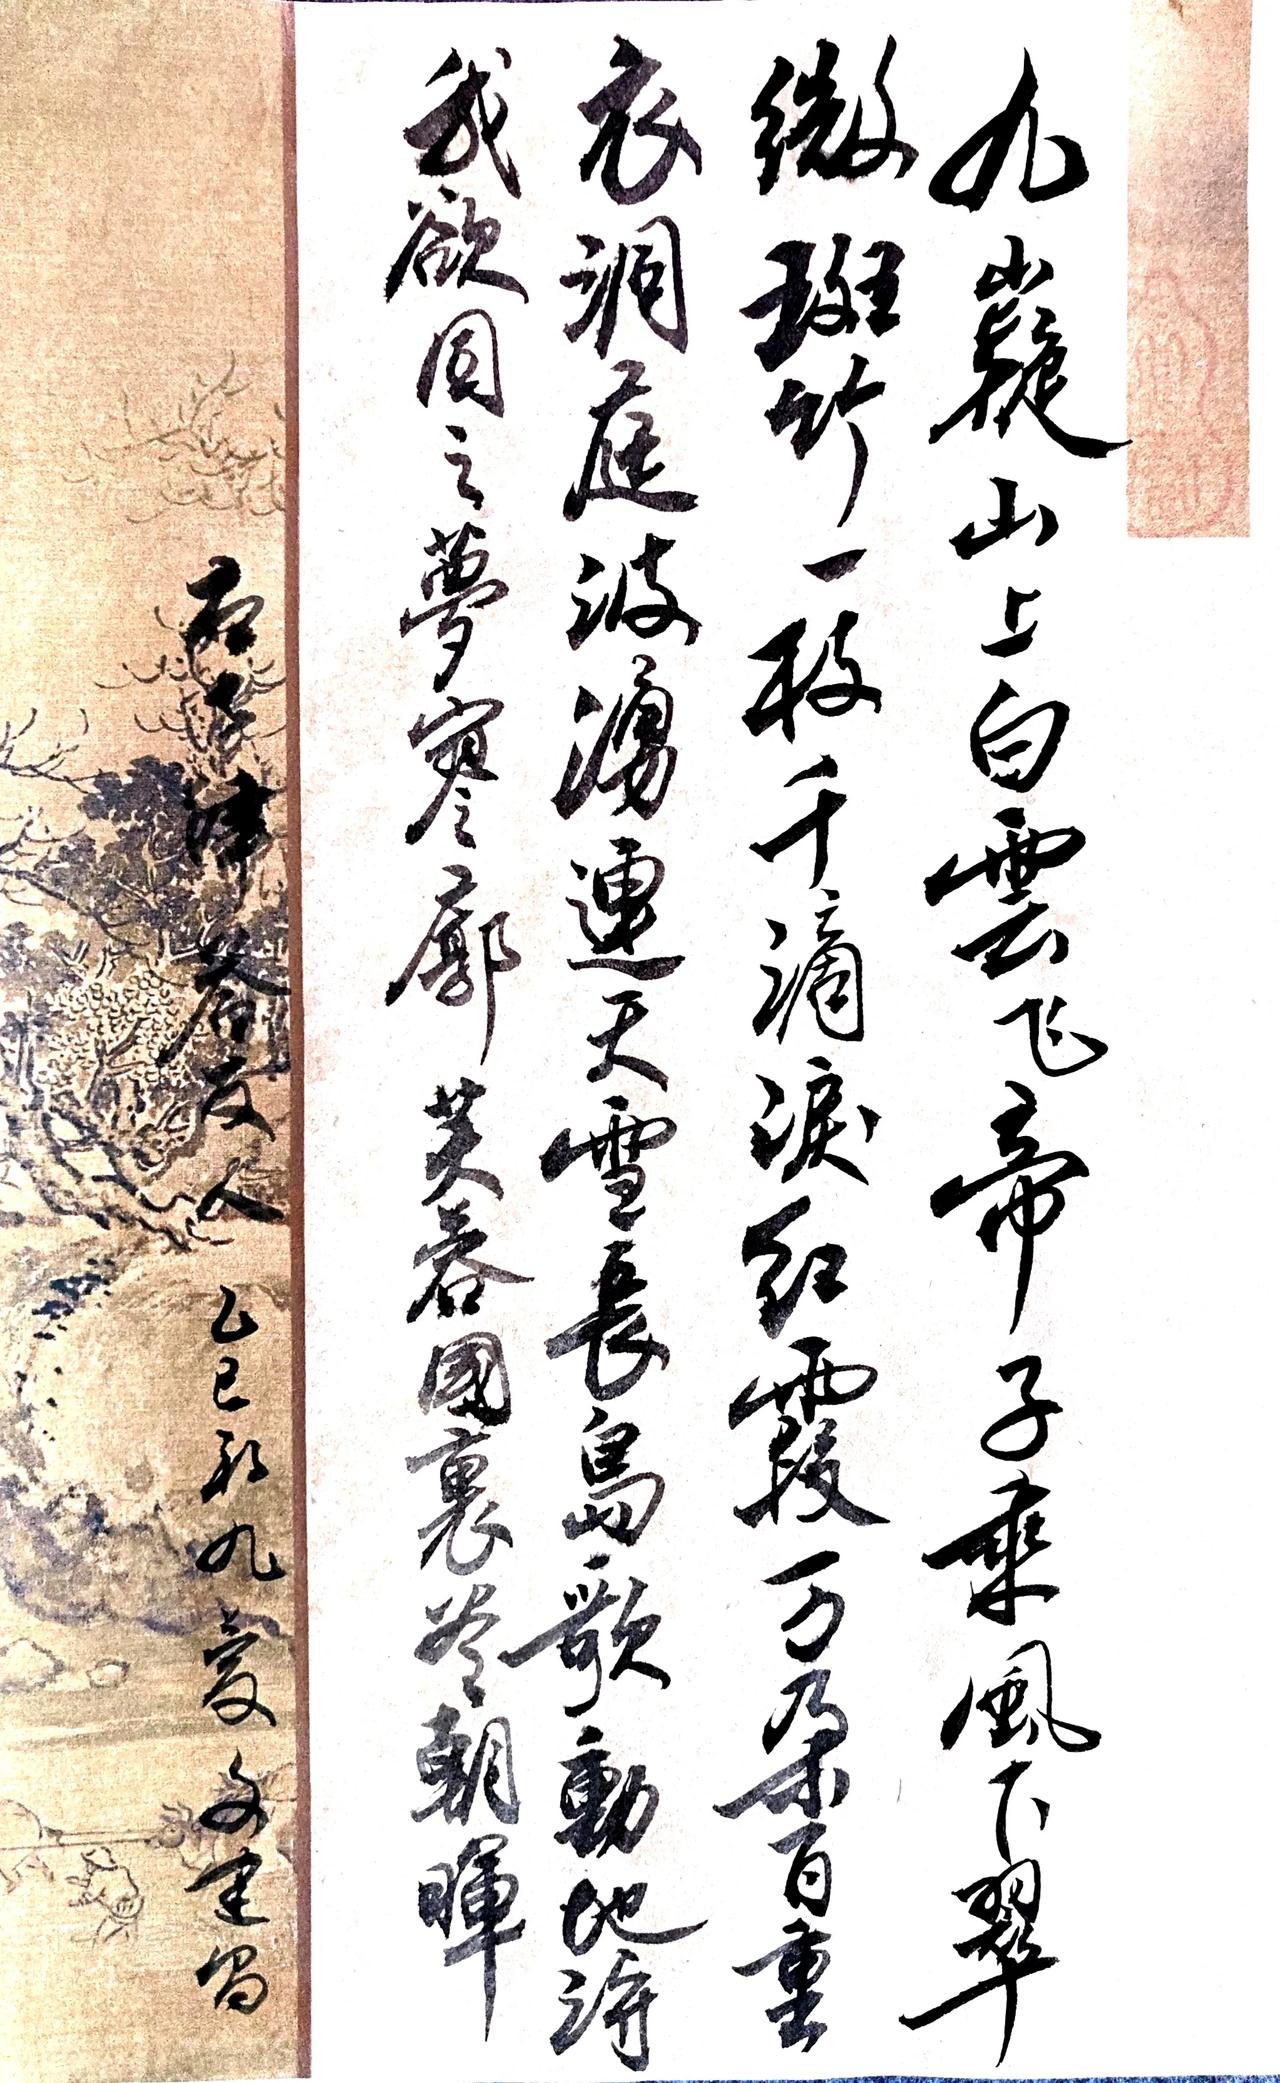 九嶷山上白雲飞帝子乘風下翠
微斑竹一枝千滴淚红霞万朵百重
衣洞庭波湧連天雪長島歌動地詩
我欲因之夢寥廓芙蓉國裏尽朝暉
律答友人 乙巳初九夏文建